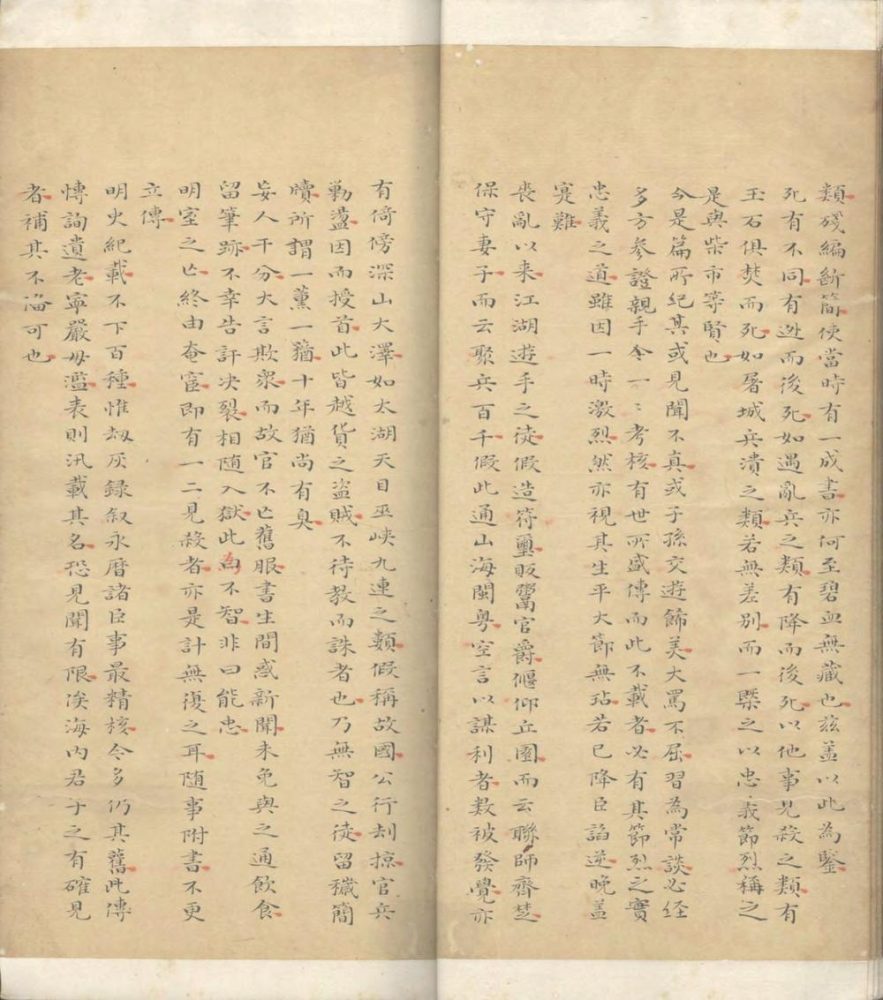 類殘編斷簡使當時有一成書亦何至碧血無藏也玆盖以此為鑒
死有不同有逃而後死如遇亂兵之類有降而後死以他事見殺之類有
玉石俱焚而死如屠城兵潰之類若無差別而一槩之以忠義節烈稱之
是與柴市等賢也
今是篇所紀其或見聞不真或子孫交遊飾美大罵不屈習為常談必経
多方参證親手令一〻考核有世所盛傳而此不載者必有其節烈之實
忠義之道雖因一時激烈然亦視其生平大節無玷若已降臣謟逆晚盖
寔難
喪亂以来江湖遊手之徒假造符璽販鬻官爵偃仰丘園而云聯師齊楚
保守妻子而云聚兵百千假此通山海閩粤空言以謀利者数被發覺亦
有倚傍深山大澤如太湖天目巫峡九連之類假稱故國公行刦掠官兵
勦盪因而授首此皆越貨之盗賊不待教而誅者也乃無智之徒留穢簡
牘所謂一薰一猶十年猶尚有臭
妄人干分大言欺衆而故官不亡舊服書生間感新聞未免與之通飲食
留筆跡不幸告訐决裂相随入獄此為不智非曰能忠
明室之亡終由奄宦即有一二見殺者亦是計無復之耳随事附書不更
立傳
明火紀載不下百種惟刼灰録叙永曆諸臣事最精核今多仍其舊此傳
愽詢遺老寧嚴毋濫表則汎載其名恐見聞有限俟海内君子之有確見
者補其不逮可也